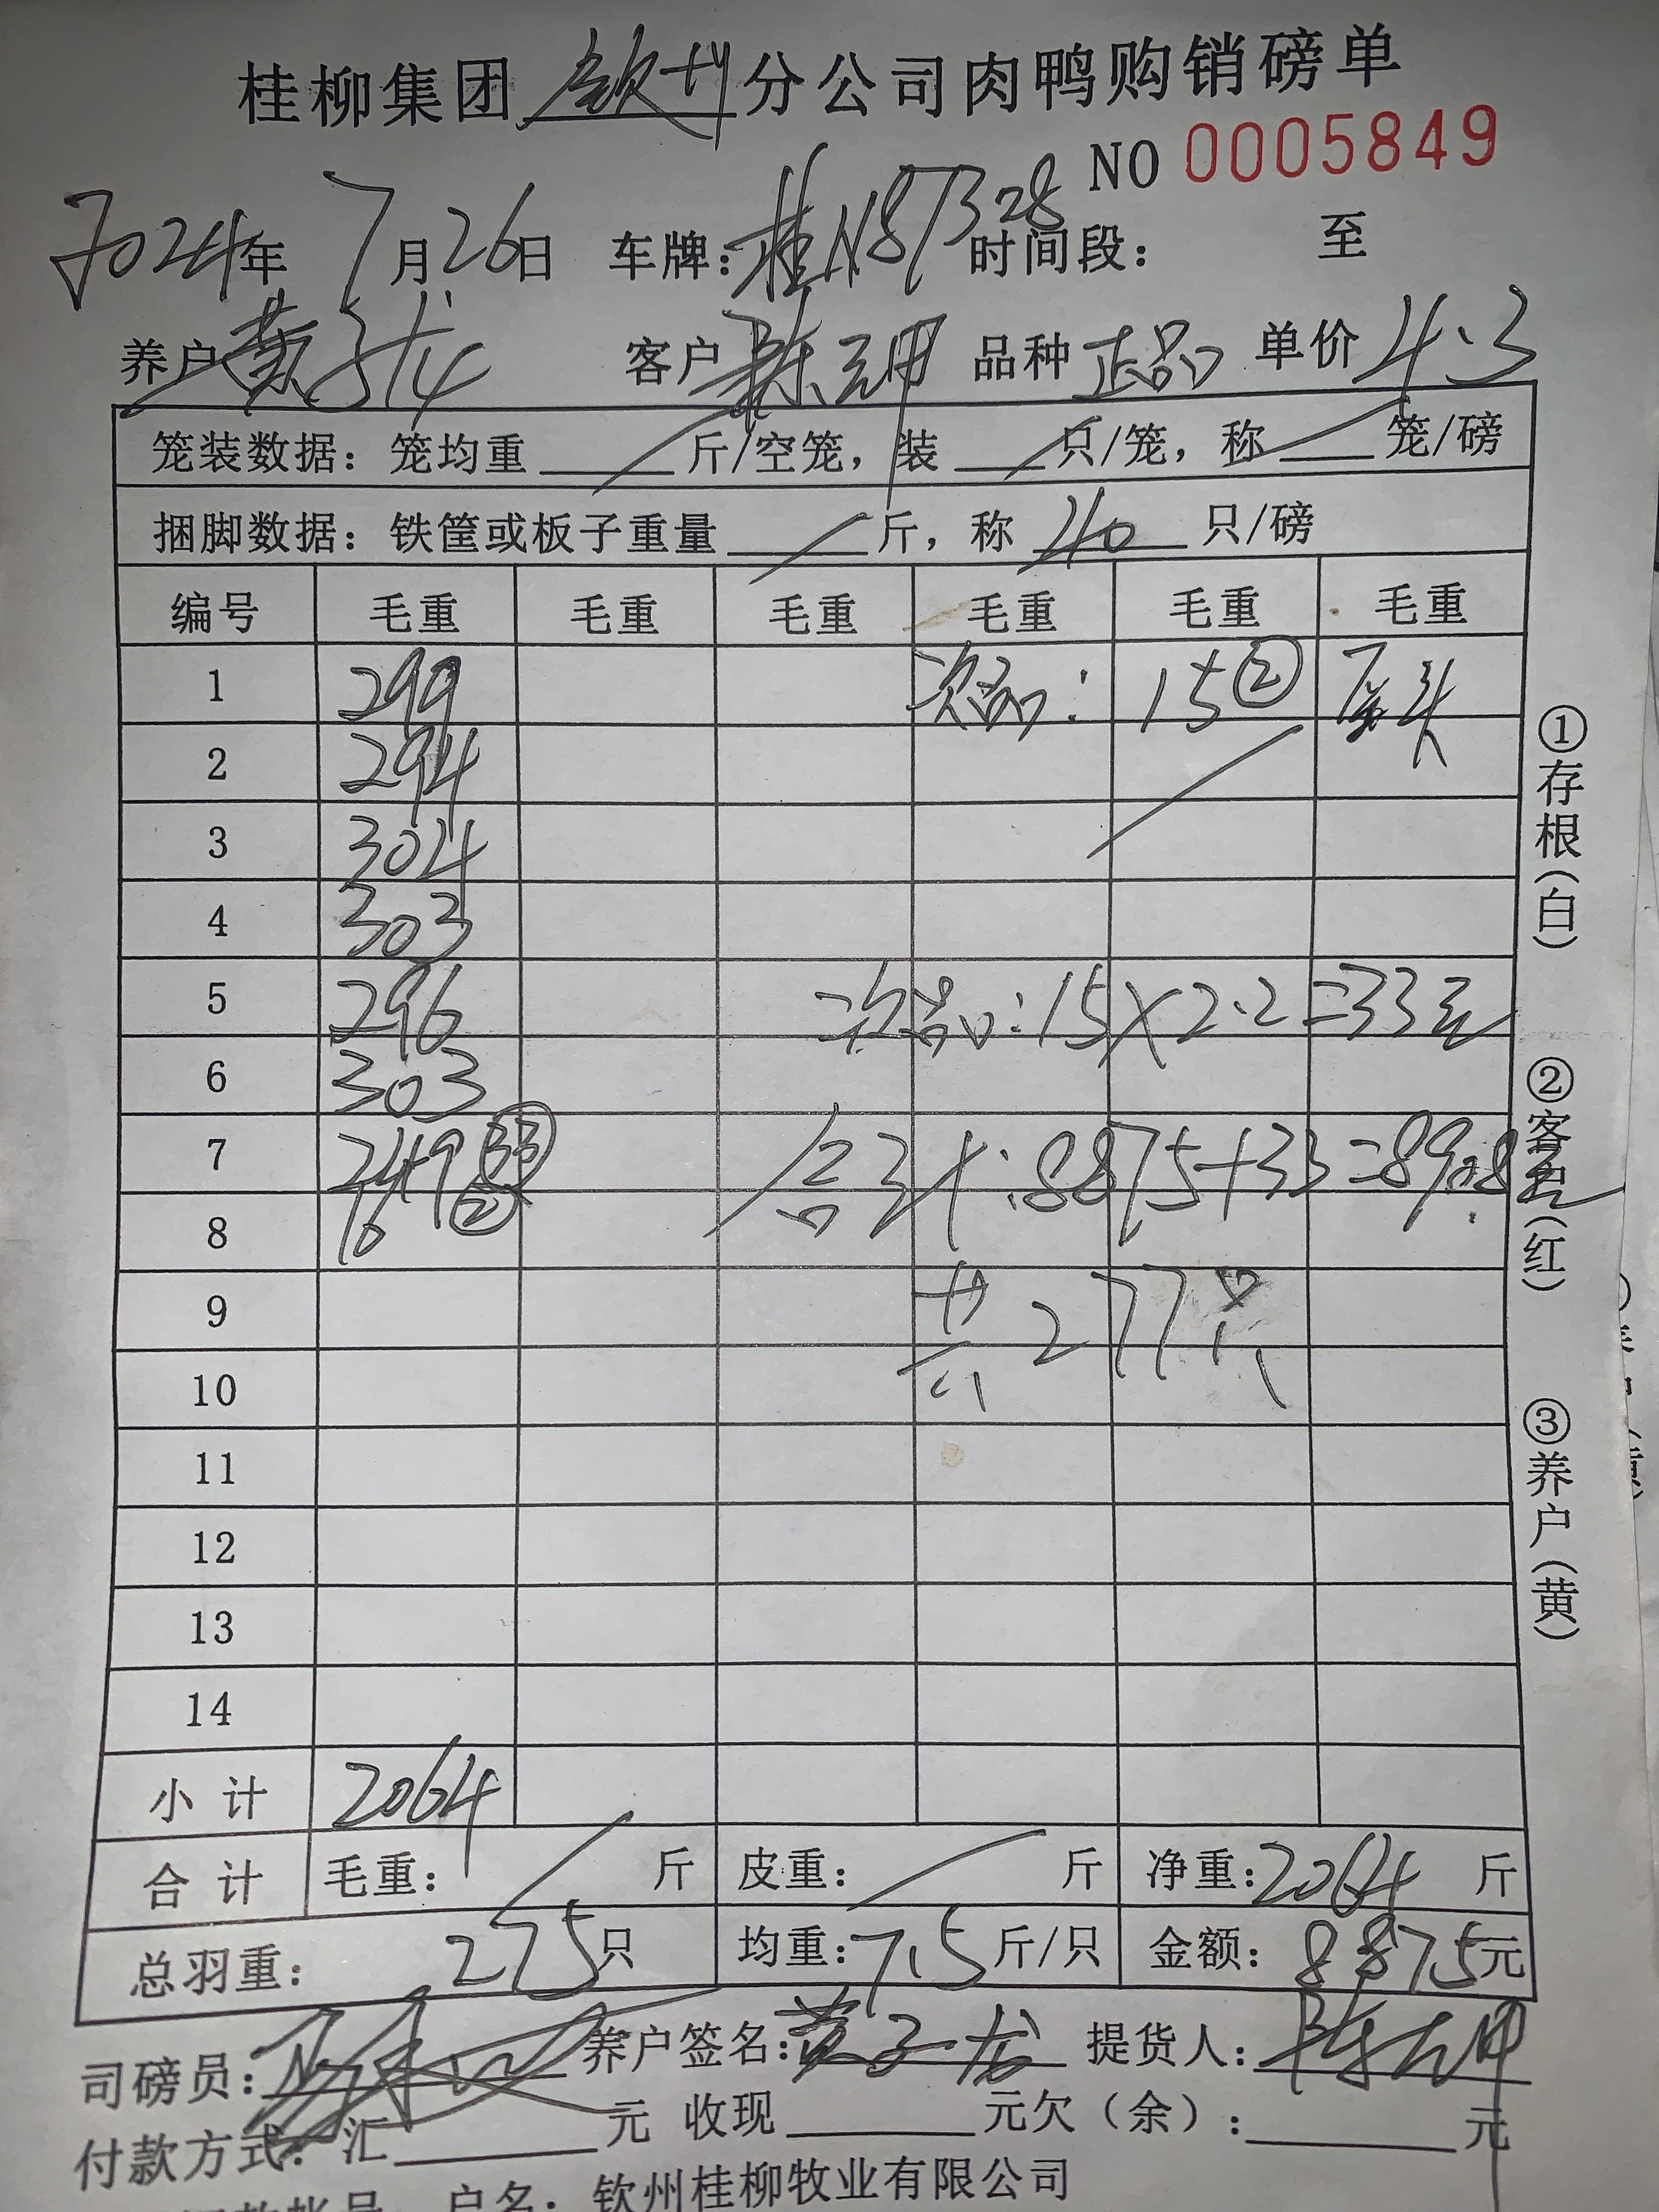 桂柳集团钦州分公司肉鸭购销磅单
NO 0005849
2024年7月26日 车牌:桂N87328 时间段: 至
养户 黄子龙 客户 陈元坤 品种 正品 单价 4.3
笼装数据:笼均重 斤/空笼,装 只/笼,称 笼/磅
捆脚数据:铁筐或板子重量 斤,称 40 只/磅
编号 毛重 毛重 毛重 毛重 毛重 毛重
1 299 次品: 15②
2 294
3 304
4 303
5 296 次品:15×2.2=33元
6 303
7 合计:8875+33=8908元
8
9 共277只
10
11
12
13
14
小计 2064
合计 毛重: 斤 皮重: 斤 净重:2064斤
总羽重: 275只 均重:7.5斤/只 金额:8875元
司磅员: 养户签名:黄子龙 提货人:陈元坤
付款方式:汇 元 收现 元欠(余): 元
户名:钦州桂柳牧业有限公司
①存根(白)
②客户(红)
③养户(黄)